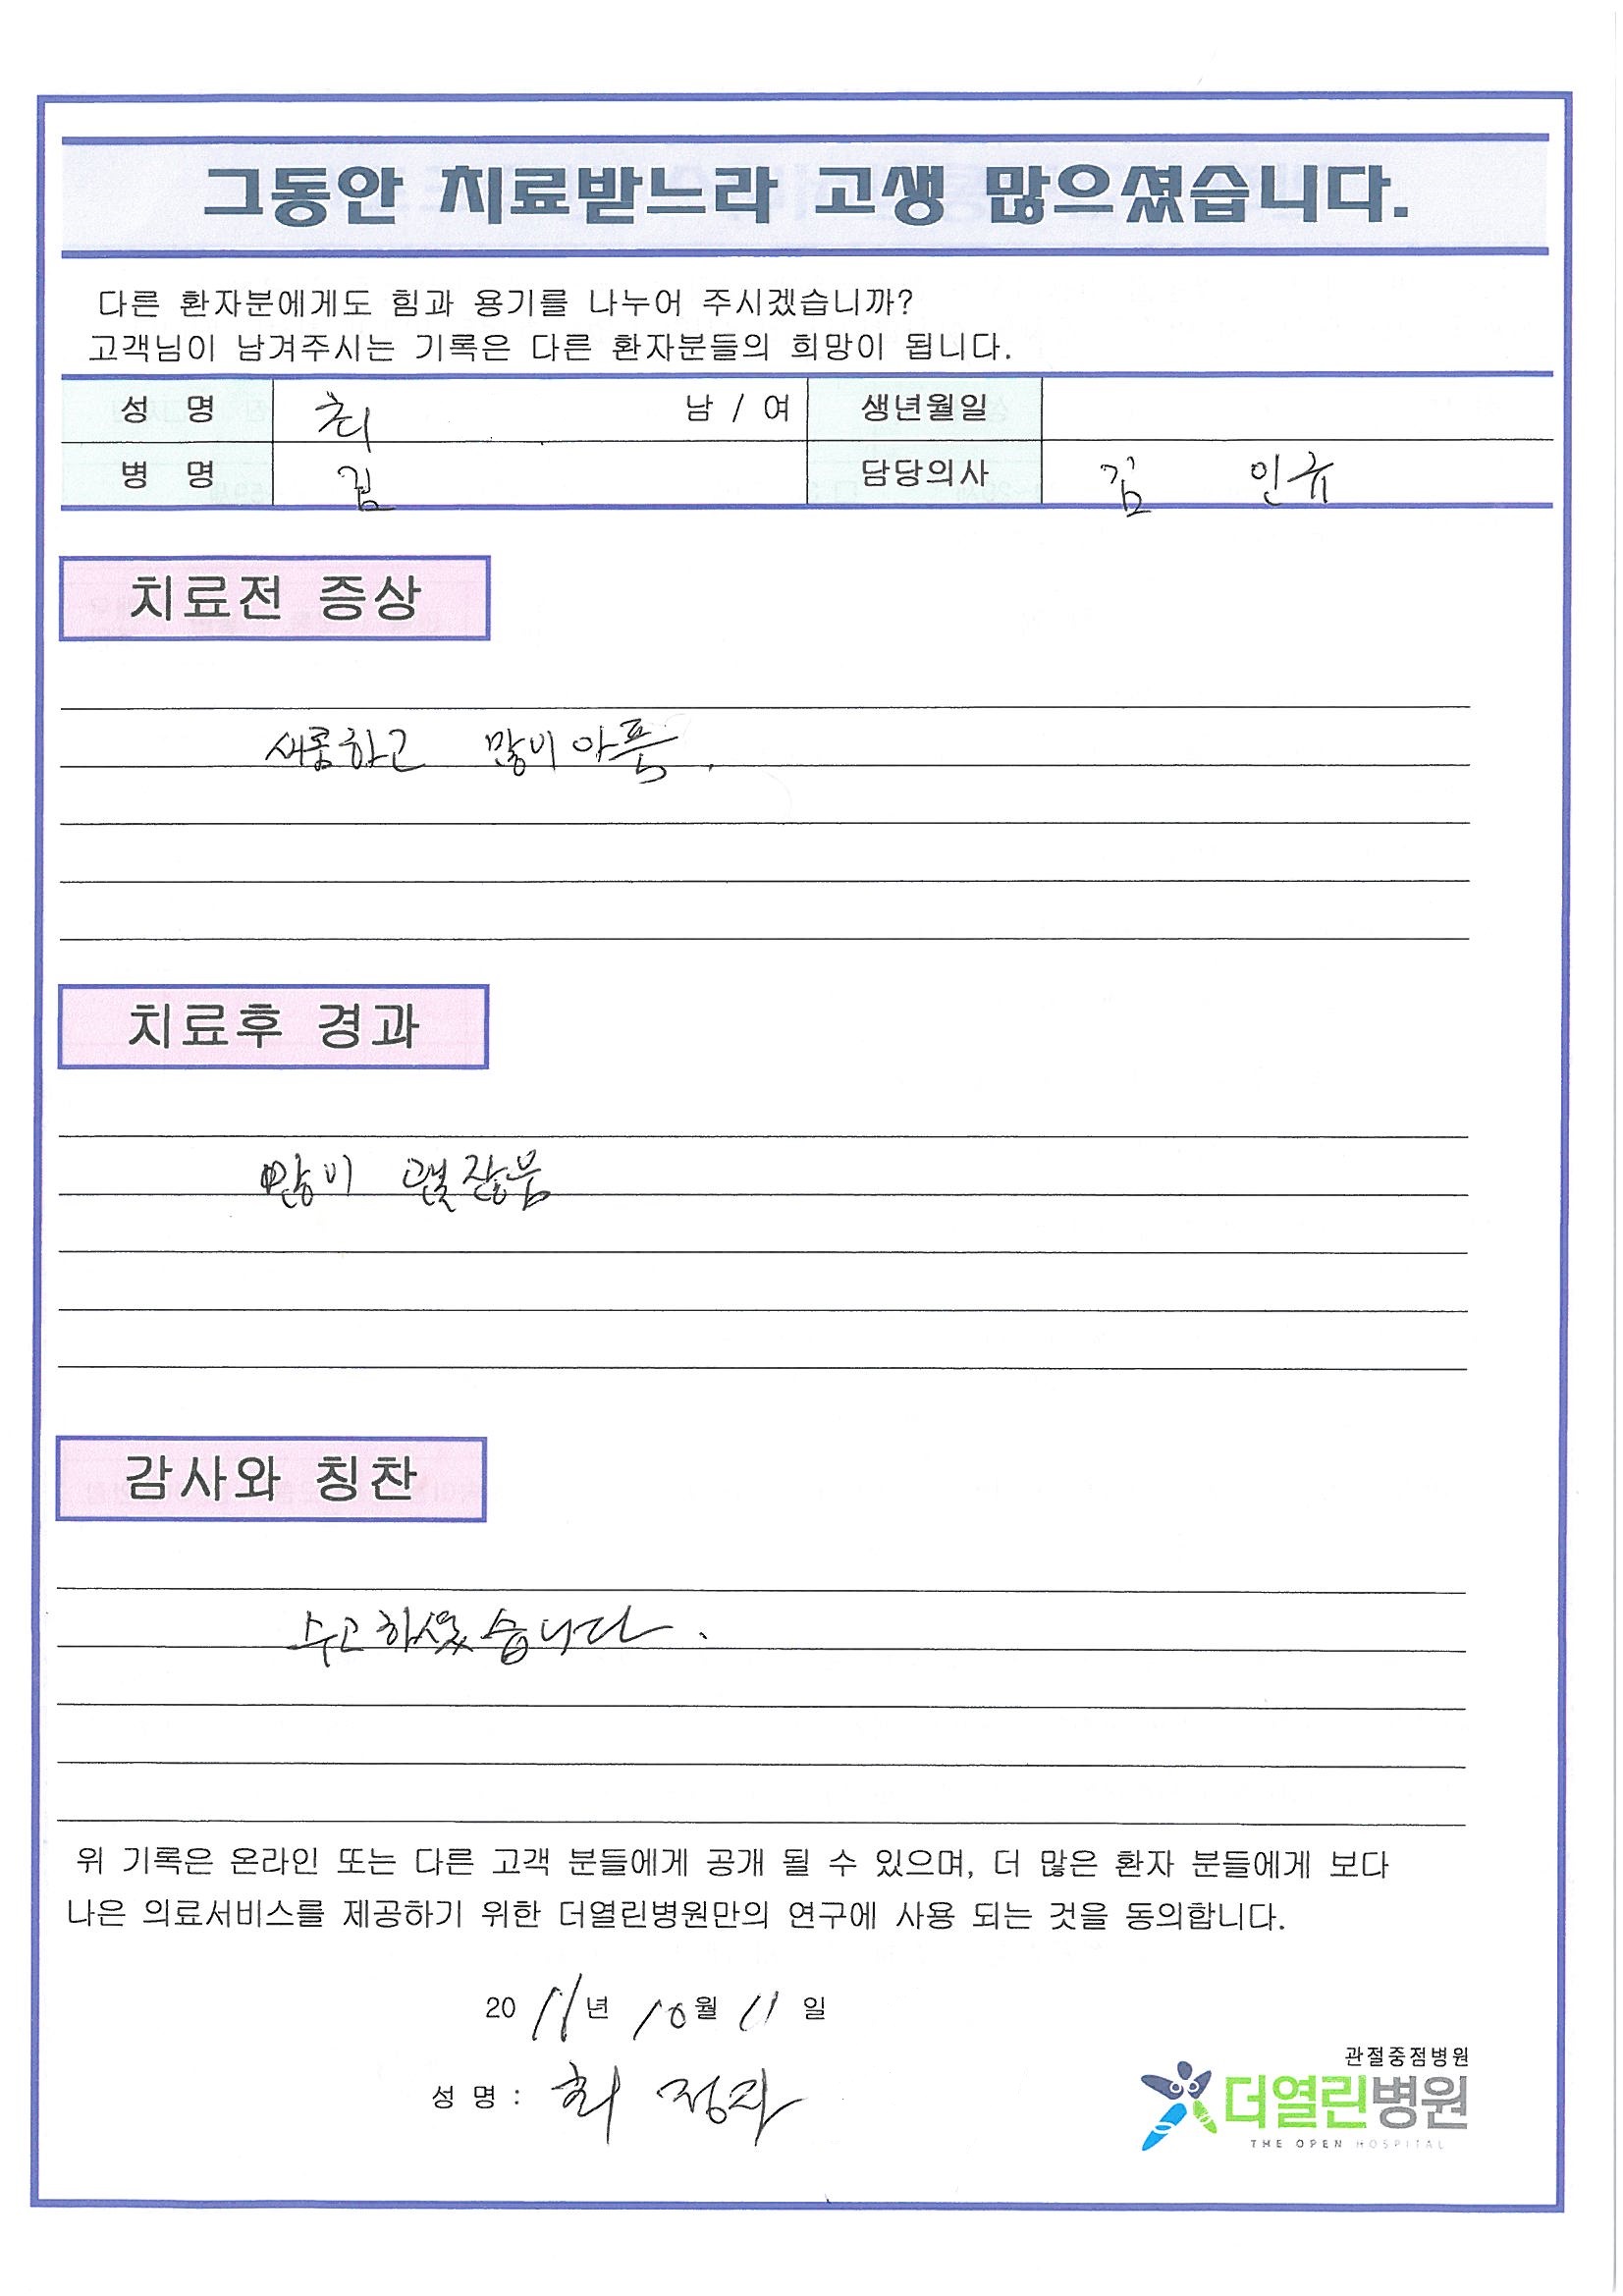 그동안 치료받느라 고생 많으셨습니다.
다른 환자분에게도 힘과 용기를 나누어 주시겠습니까?
고객님이 남겨주시는 기록은 다른 환자분들의 희망이 됩니다.
성 명 최 남 / 여 생년월일
병 명 김 담당의사 김 인규
치료전 증상
새콤하고 많이 아픔.
치료후 경과
많이
감사와 칭찬
수고하셨습니다.
위 기록은 온라인 또는 다른 고객 분들에게 공개 될 수 있으며, 더 많은 환자 분들에게 보다
나은 의료서비스를 제공하기 위한 더열린병원만의 연구에 사용 되는 것을 동의합니다.
20 년 10월 11 일
성 명 : 최 정자
관절중점병원
더열린병원
THE OPEN HOSPITAL